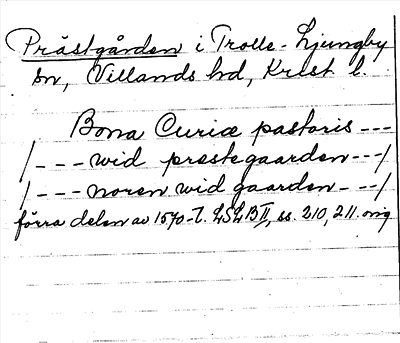 Prästgården i Trolle-Ljungby
sn, Villands hd, Krist. l.
Bona Curiæ pastoris ---
/--- wid prestegaarden ---/
/--- noren wid gaarden ---/
förra delen av 1570-t. LSLB II, ss. 210, 211. orig